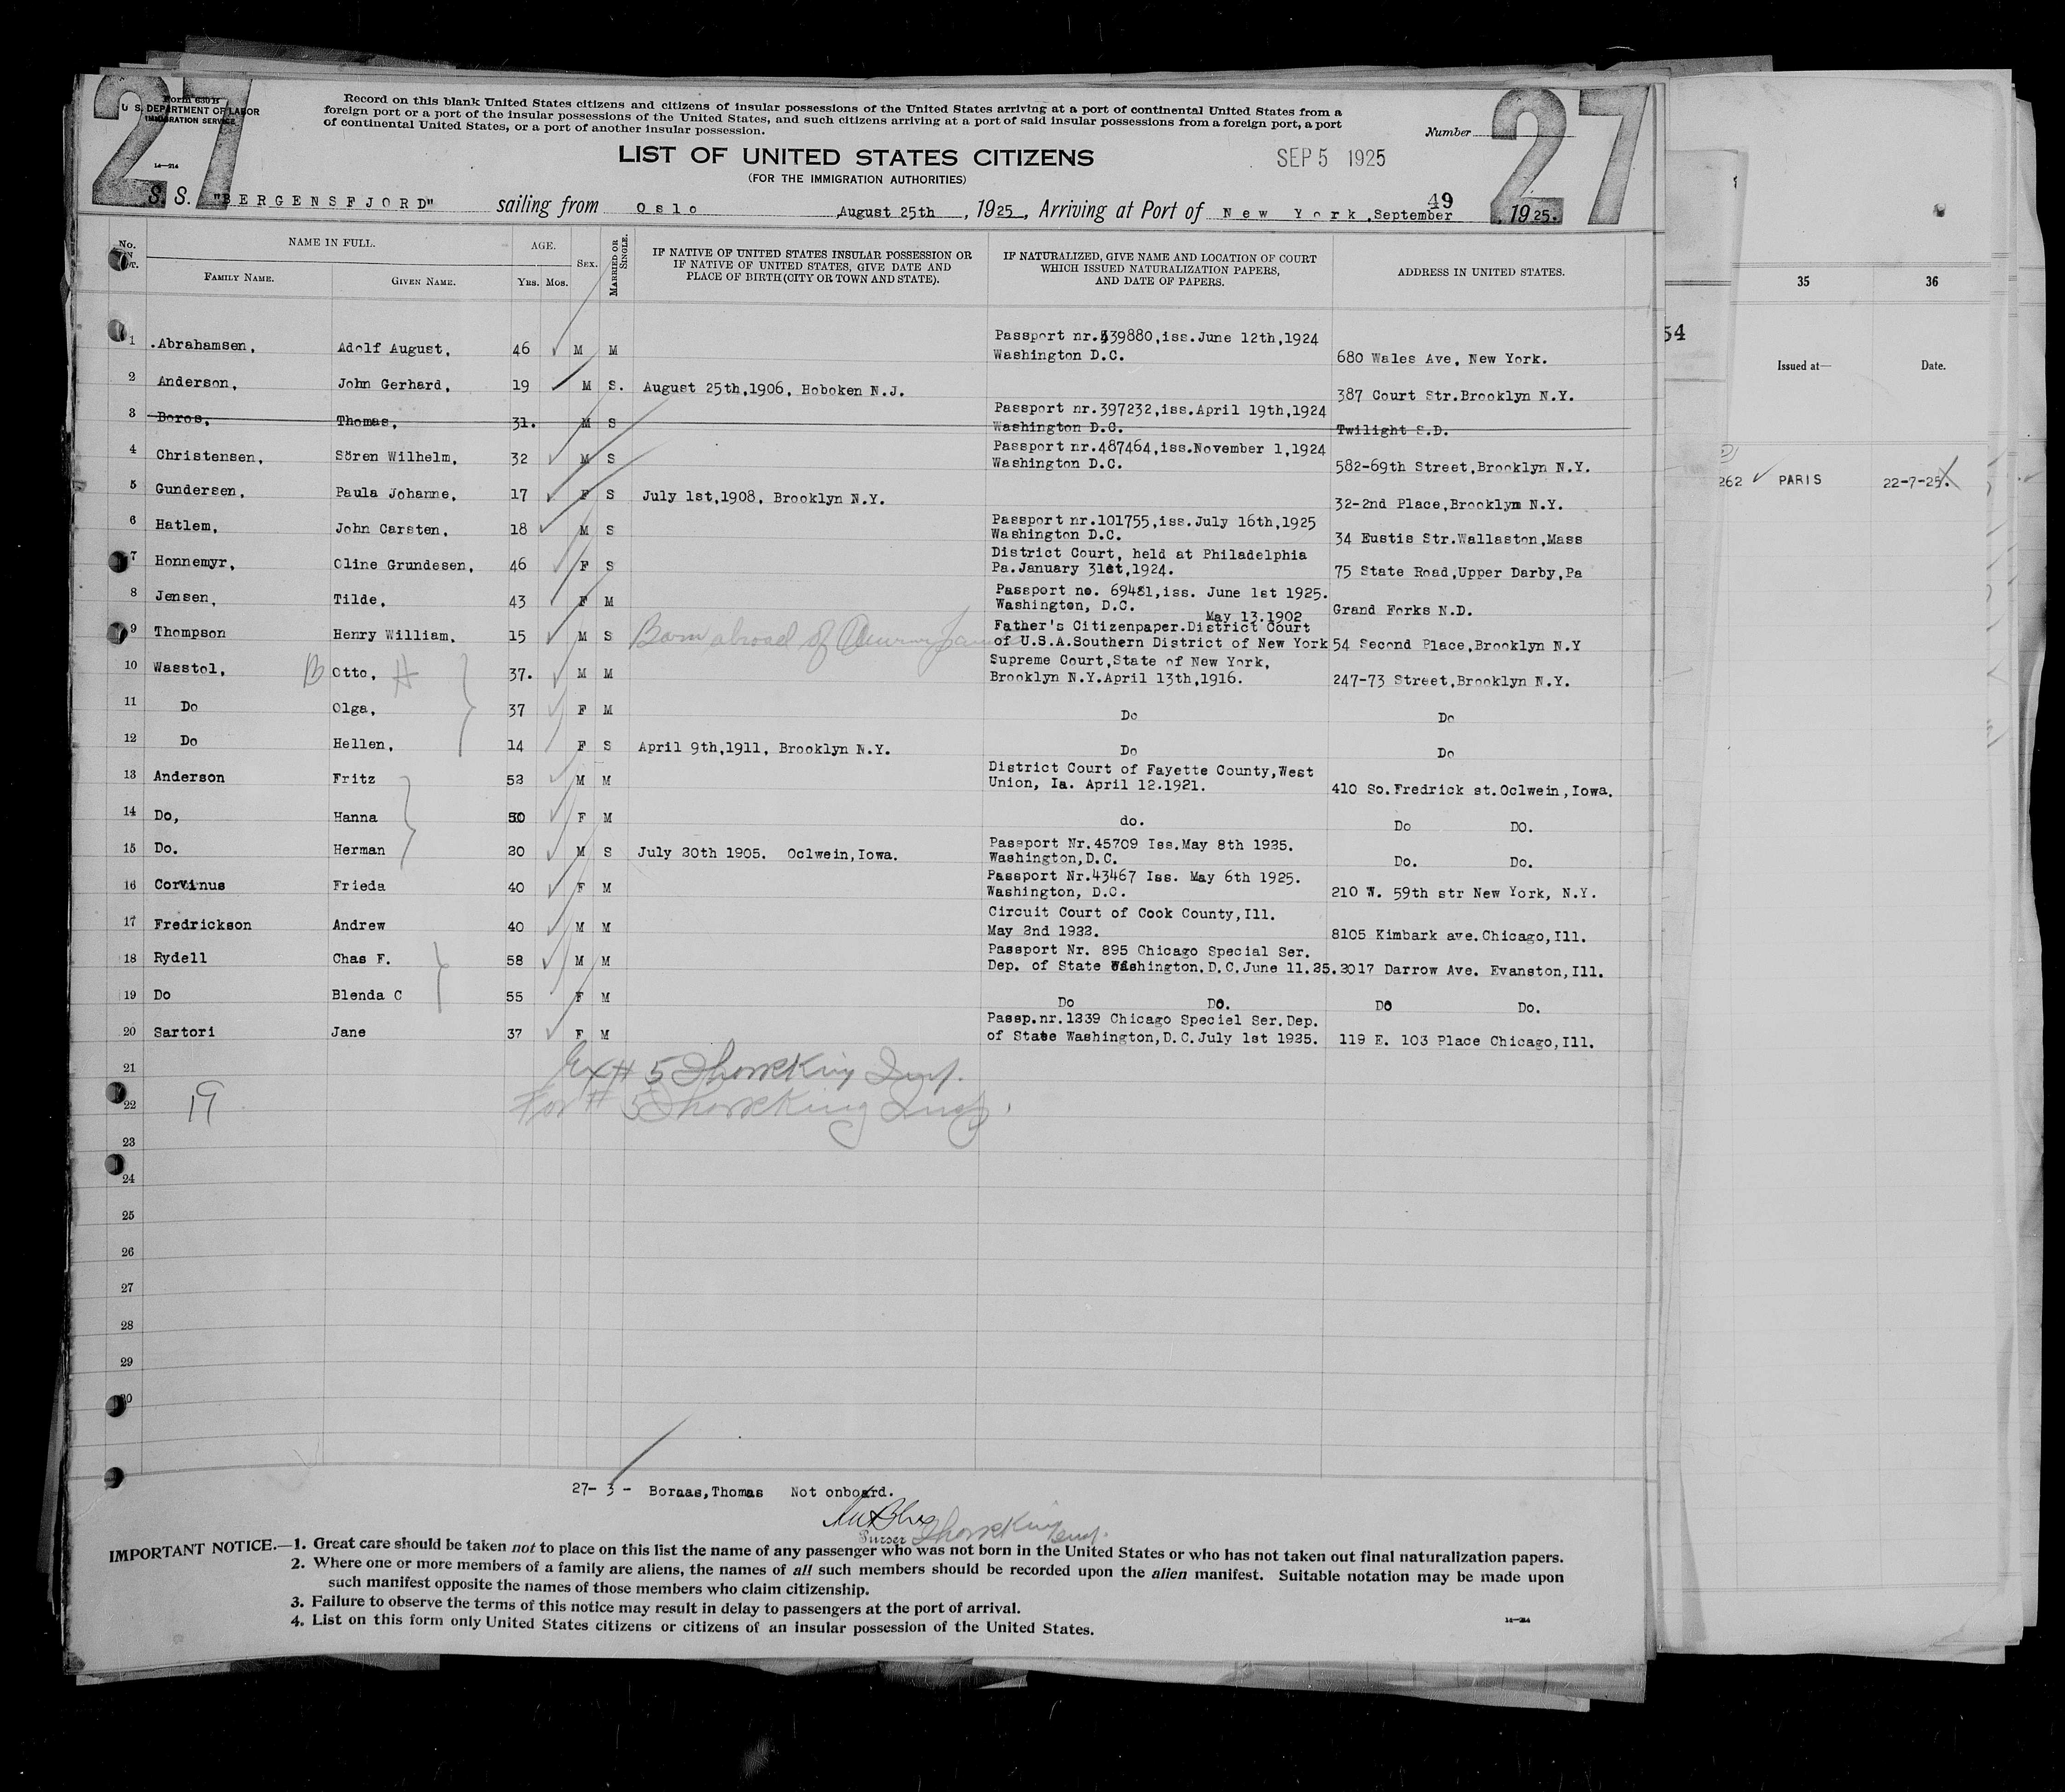 27
27
Form 630 B
U. S. DEPARTMENT OF LABOR
IMMIGRATION SERVICE
14—214
Record on this blank United States citizens and citizens of insular possessions of the United States arriving at a port of continental United States from a
foreign port or a port of the insular possessions of the United States, and such citizens arriving at a port of said insular possessions from a foreign port, a port
of continental United States, or a port of another insular possession.
Number
LIST OF UNITED STATES CITIZENS
SEP 5 1925
(FOR THE IMMIGRATION AUTHORITIES)
S. S. "BERGENSFJORD" sailing from Oslo August 25th, 1925, Arriving at Port of New York, September 49, 1925.
No. NAME IN FULL. AGE. SEX. MARRIED OR SINGLE. IF NATIVE OF UNITED STATES INSULAR POSSESSION OR IF NATIVE OF UNITED STATES, GIVE DATE AND PLACE OF BIRTH (CITY OR TOWN AND STATE). IF NATURALIZED, GIVE NAME AND LOCATION OF COURT WHICH ISSUED NATURALIZATION PAPERS, AND DATE OF PAPERS. ADDRESS IN UNITED STATES.
FAMILY NAME. GIVEN NAME. YRS. MOS.
1 .Abrahamsen, Adolf August, 46 M M Passport nr.539880,iss.June 12th,1924
Washington D.C. 680 Wales Ave, New York.
2 Anderson, John Gerhard, 19 M S. August 25th,1906, Hoboken N.J. 387 Court Str.Brooklyn N.Y.
3 Boros, Thomas, 31. M S Passport nr.397232,iss.April 19th,1924
Washington D.C. Twilight S.D.
4 Christensen, Sören Wilhelm, 32 M S Passport nr.487464,iss.November 1,1924
Washington D.C. 582-69th Street,Brooklyn N.Y.
5 Gundersen, Paula Johanne, 17 F S July 1st,1908, Brooklyn N.Y. 32-2nd Place,Brooklyn N.Y.
6 Hatlem, John Carsten, 18 M S Passport nr.101755,iss.July 16th,1925
Washington D.C. 34 Eustis Str.Wallaston,Mass
7 Honnemyr, Oline Grundesen, 46 F S District Court, held at Philadelphia
Pa.January 31st,1924. 75 State Road,Upper Darby,Pa
8 Jensen, Tilde, 43 F M Passport no. 69481,iss. June 1st 1925.
Washington, D.C. Grand Forks N.D.
May 13.1902
9 Thompson Henry William, 15 M S Born abroad of Father's Citizenpaper.District Court
of U.S.A.Southern District of New York 54 Second Place,Brooklyn N.Y
10 Wasstol, B Otto, H 37. M M Supreme Court,State of New York,
Brooklyn N.Y.April 13th,1916. 247-73 Street,Brooklyn N.Y.
11 Do Olga, 37 F M Do Do
12 Do Hellen, 14 F S April 9th,1911, Brooklyn N.Y. Do Do
13 Anderson Fritz 53 M M District Court of Fayette County,West
Union, Ia. April 12.1921. 410 So.Fredrick st.Oclwein,Iowa.
14 Do, Hanna 50 F M do. Do DO.
15 Do. Herman 20 M S July 20th 1905. Oclwein,Iowa. Passport Nr.45709 Iss.May 8th 1925.
Washington,D.C. Do. Do.
16 Corvinus Frieda 40 F M Passport Nr.43467 Iss. May 6th 1925.
Washington, D.C. 210 W. 59th str New York, N.Y.
17 Fredrickson Andrew 40 M M Circuit Court of Cook County,Ill.
May 2nd 1922. 8105 Kimbark ave.Chicago,Ill.
18 Rydell Chas F. 58 M M Passport Nr. 895 Chicago Special Ser.
Dep. of State Washington.D.C.June 11.25. 2017 Darrow Ave. Evanston,Ill.
19 Do Blenda C 55 F M Do Do. Do Do.
20 Sartori Jane 37 F M Passp.nr.1339 Chicago Speciel Ser.Dep.
of State Washington,D.C.July 1st 1925. 119 E. 103 Place Chicago,Ill.
21
22 19
23
24
25
26
27
28
29
30
27- 3 - Boraas,Thomas Not onboard.
Purser
IMPORTANT NOTICE.—1. Great care should be taken not to place on this list the name of any passenger who was not born in the United States or who has not taken out final naturalization papers.
2. Where one or more members of a family are aliens, the names of all such members should be recorded upon the alien manifest. Suitable notation may be made upon
such manifest opposite the names of those members who claim citizenship.
3. Failure to observe the terms of this notice may result in delay to passengers at the port of arrival.
4. List on this form only United States citizens or citizens of an insular possession of the United States.
14—214
35 36
54
Issued at— Date.
262 PARIS 22-7-25.